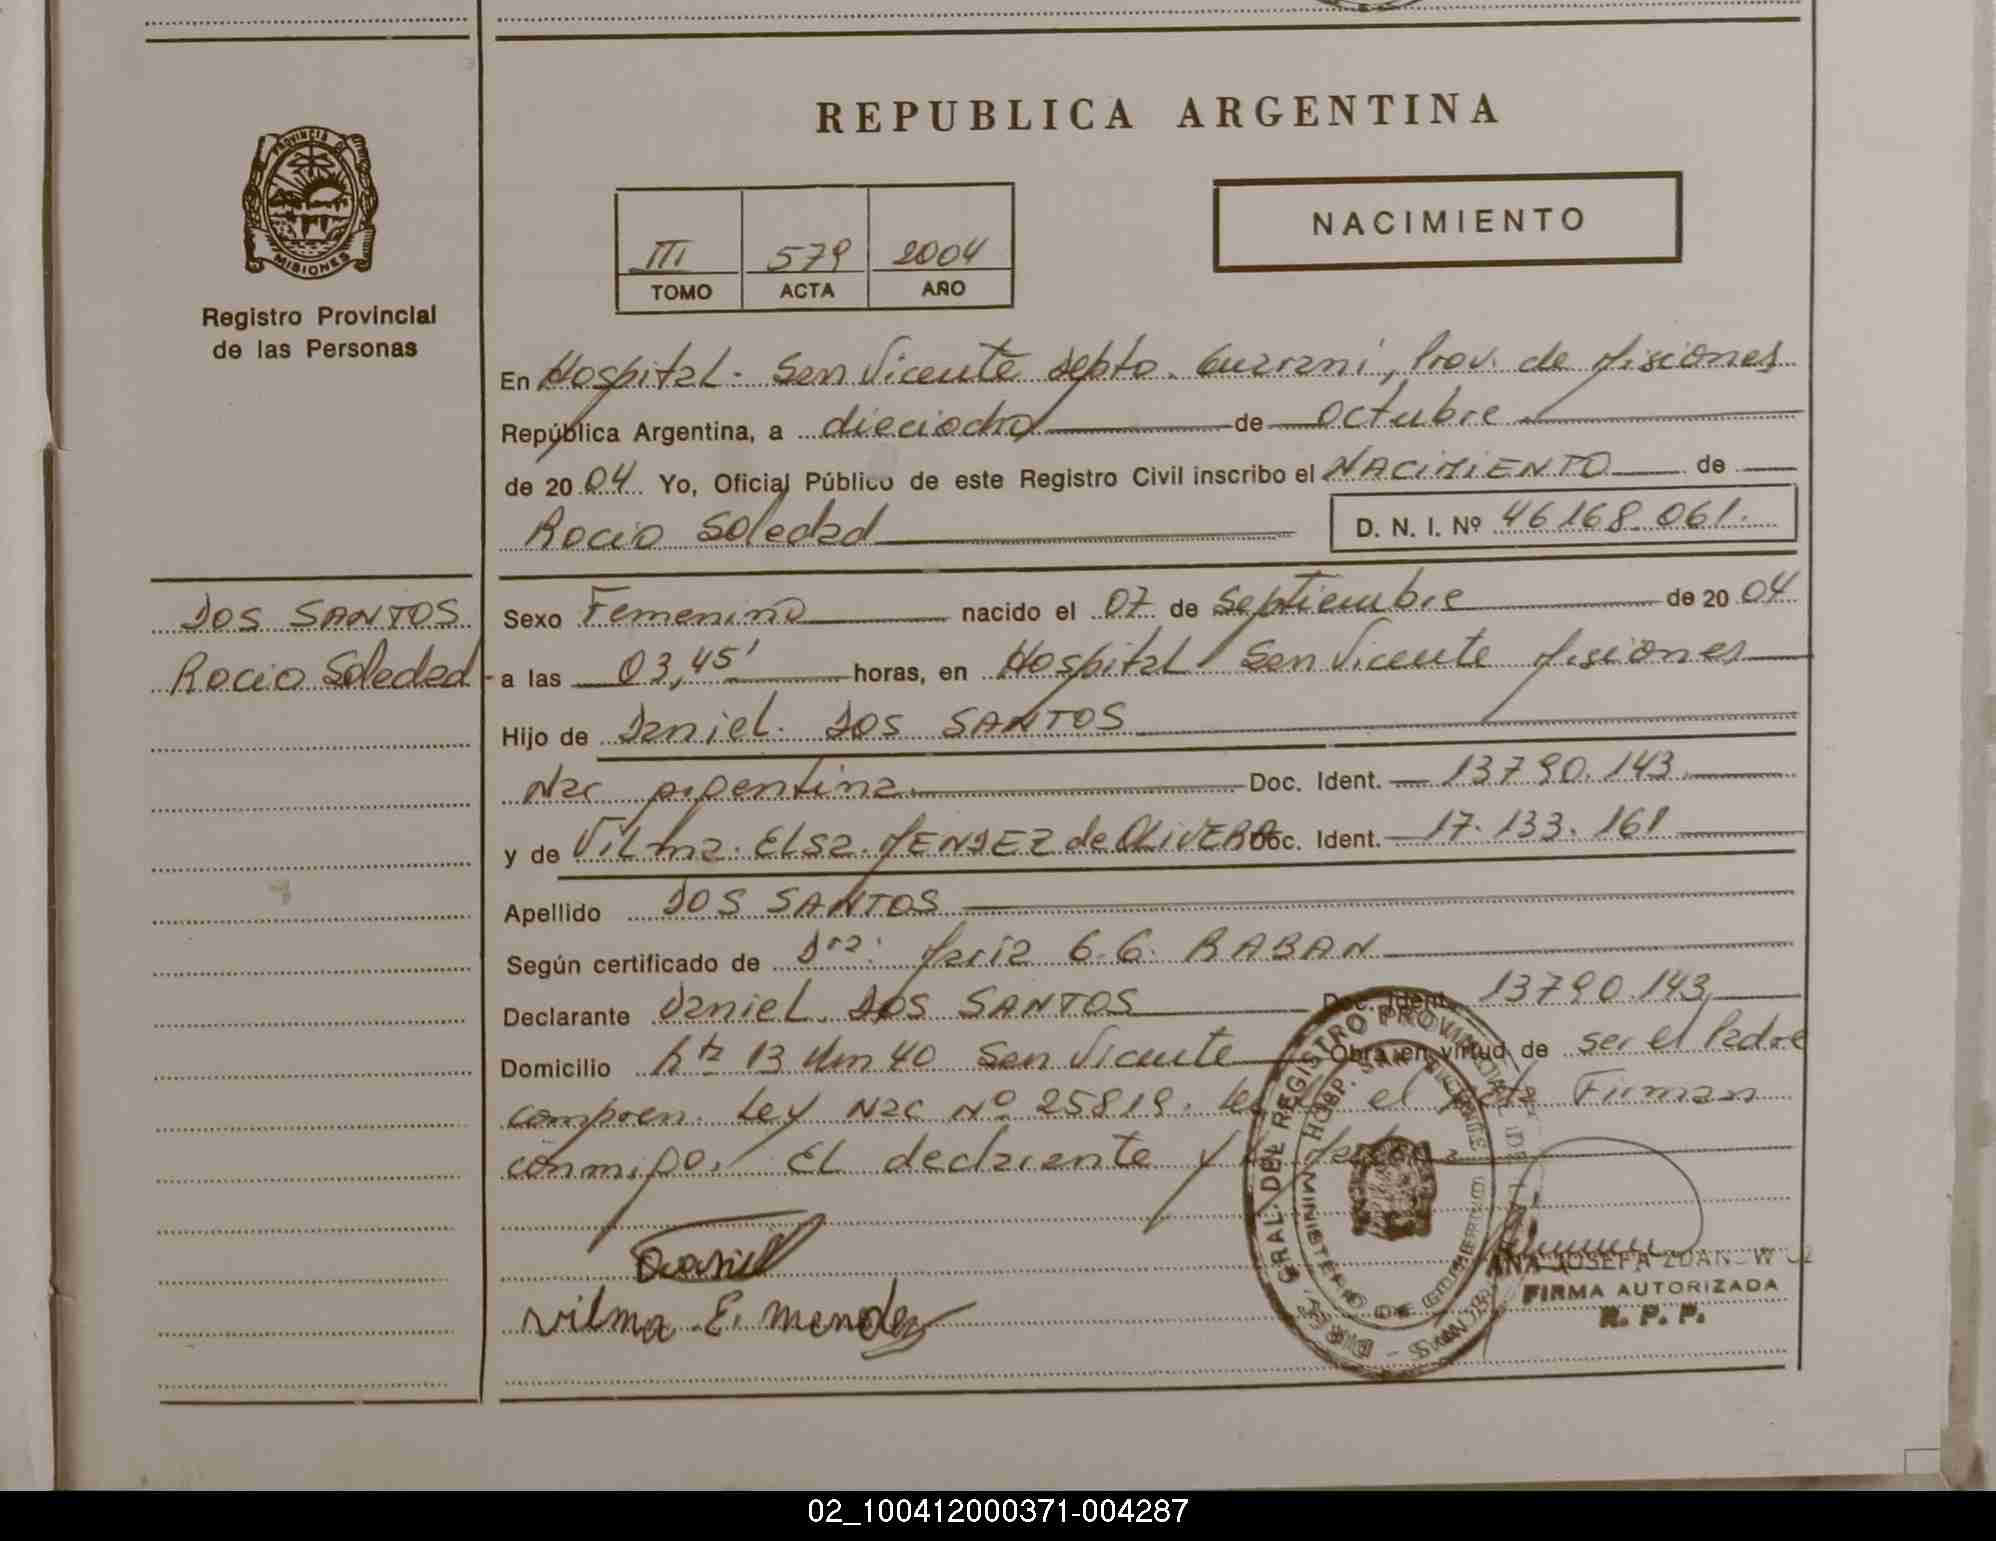 REPUBLICA ARGENTINA
PROVINCIA DE
MISIONES
Registro Provincial
de las Personas
III 579 2004
TOMO ACTA AÑO
NACIMIENTO
En Hospital. San Vicente depto. Guarani, Prov. de Misiones
República Argentina, a dieciocho de octubre
de 2004 Yo, Oficial Público de este Registro Civil inscribo el NACIMIENTO de
Rocio Soledad D. N. I. Nº 46168.061.
DOS SANTOS
Rocio Soledad
Sexo Femenino nacido el 07 de Septiembre de 2004
a las 03,45' horas, en Hospital San Vicente Misiones
Hijo de Daniel. DOS SANTOS
Nac Argentina Doc. Ident. 13790.143
y de Vilma. Elsa. MENDEZ de OLIVERA Doc. Ident. 17.133.161
Apellido DOS SANTOS
Según certificado de Dra: Maria G.G. RABAN
Declarante Daniel. DOS SANTOS Doc. Ident. 13790.143
Domicilio Km 40 San Vicente Obra en virtud de ser el Padre
compren. Ley Nac Nº 25819. el Acta Firman
conmigo. El declarante y la
Daniel
Vilma E. Mendez
DIREC. GRAL. DEL REGISTRO PROVINCIAL DE LAS PERSONAS
HOSP. SAN VICENTE
MINISTERIO DE GOBIERNO
ANA JOSEFA
FIRMA AUTORIZADA
R. P. P.
02_100412000371-004287